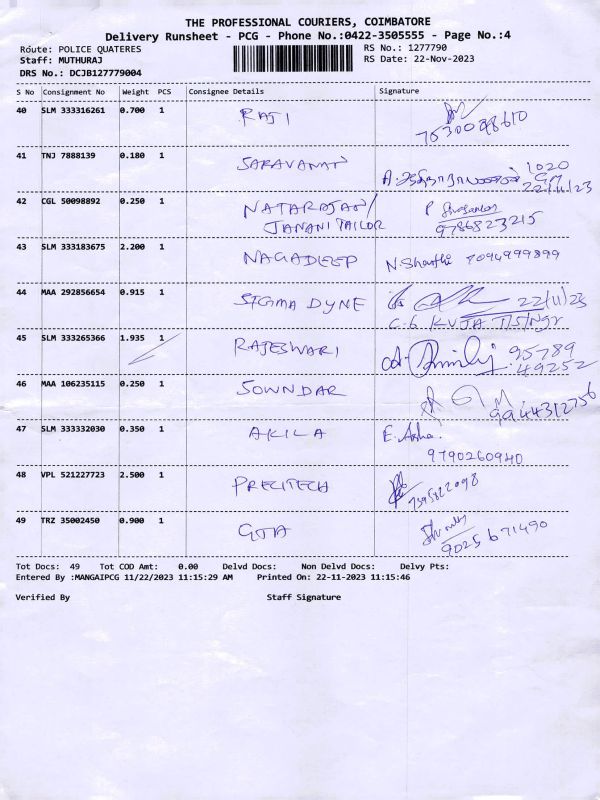 THE PROFESSIONAL COURIERS, COIMBATORE
Delivery Runsheet - PCG - Phone No.:0422-3505555 - Page No.:4
Route: POLICE QUATERES RS No.: 1277790
Staff: MUTHURAJ RS Date: 22-Nov-2023
DRS No.: DCJB127779004
S No Consignment No Weight PCS Consignee Details Signature
40 SLM 333316261 0.700 1 RAJI
7630098610
41 TNJ 7888139 0.180 1 SARAVANAN 1020
22/11/23
42 CGL 50098892 0.250 1 NATARAJAN/ P Sivasankar
JANANI TAILOR 9786823215
43 SLM 333183675 2.200 1 NAGADEEP N. Shanthi 8094999899
44 MAA 292856654 0.915 1 SIGMA DYNE 22/11/23
C.6 KVJA T/S/Ngr
45 SLM 333265366 1.935 1 RAJESWARI 95789
49252
46 MAA 106235115 0.250 1 SOWNDAR
9944312756
47 SLM 333332030 0.350 1 AKILA E. Asha.
9790260940
48 VPL 521227723 2.500 1 PRECITECH 7395822098
49 TRZ 35002450 0.900 1 GTA
9025671490
Tot Docs: 49 Tot COD Amt: 0.00 Delvd Docs: Non Delvd Docs: Delvy Pts:
Entered By :MANGAIPCG 11/22/2023 11:15:29 AM Printed On: 22-11-2023 11:15:46
Verified By Staff Signature